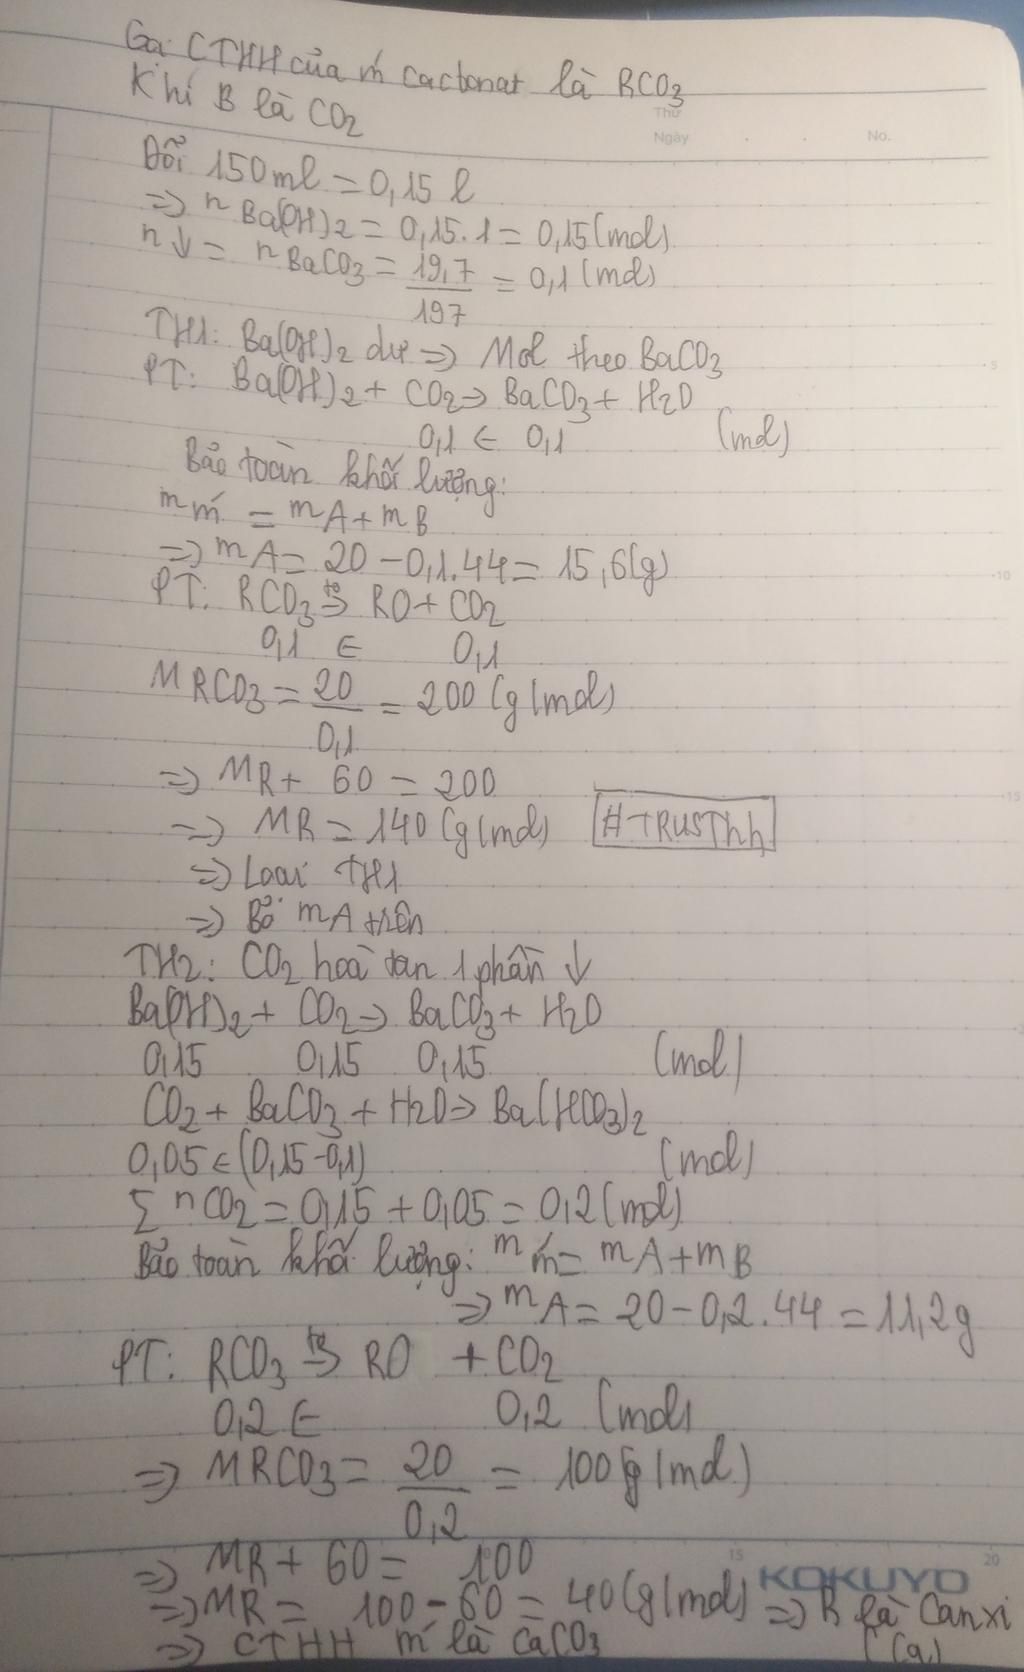 Gọi CTHH của ḿ cacbonat là RCO3
Khí B là CO2
Thứ
Ngày . . No.
Đổi 150ml = 0,15 l
=> n Ba(OH)2 = 0,15.1 = 0,15(mol)
n↓ = n BaCO3 = 19,7/197 = 0,1 (mol)
TH1: Ba(OH)2 dư => Mol theo BaCO3
PT: Ba(OH)2 + CO2 -> BaCO3 + H2O
0,1 ← 0,1 (mol)
Bảo toàn khối lượng:
m ḿ = mA + mB
=> mA = 20 - 0,1.44 = 15,6(g)
PT: RCO3 t°-> RO + CO2
0,1 ← 0,1
MRCO3 = 20/0,1 = 200 (g/mol)
=> MR + 60 = 200
=> MR = 140 (g/mol) #TRUSThh
=> Loại TH1
=> Bỏ mA trên
TH2: CO2 hoà tan 1 phần ↓
Ba(OH)2 + CO2 -> BaCO3 + H2O
0,15 0,15 0,15 (mol)
CO2 + BaCO3 + H2O -> Ba(HCO3)2
0,05 ← (0,15-0,1) (mol)
Σ nCO2 = 0,15 + 0,05 = 0,2 (mol)
Bảo toàn khối lượng: m ḿ = mA + mB
=> mA = 20 - 0,2.44 = 11,2g
PT: RCO3 t°-> RO + CO2
0,2 ← 0,2 (mol)
=> MRCO3 = 20/0,2 = 100(g/mol)
=> MR + 60 = 100
KOKUYO
=> MR = 100 - 60 = 40 (g/mol) => R là Canxi
=> CTHH ḿ là CaCO3 (Ca)
5
10
15
15
20